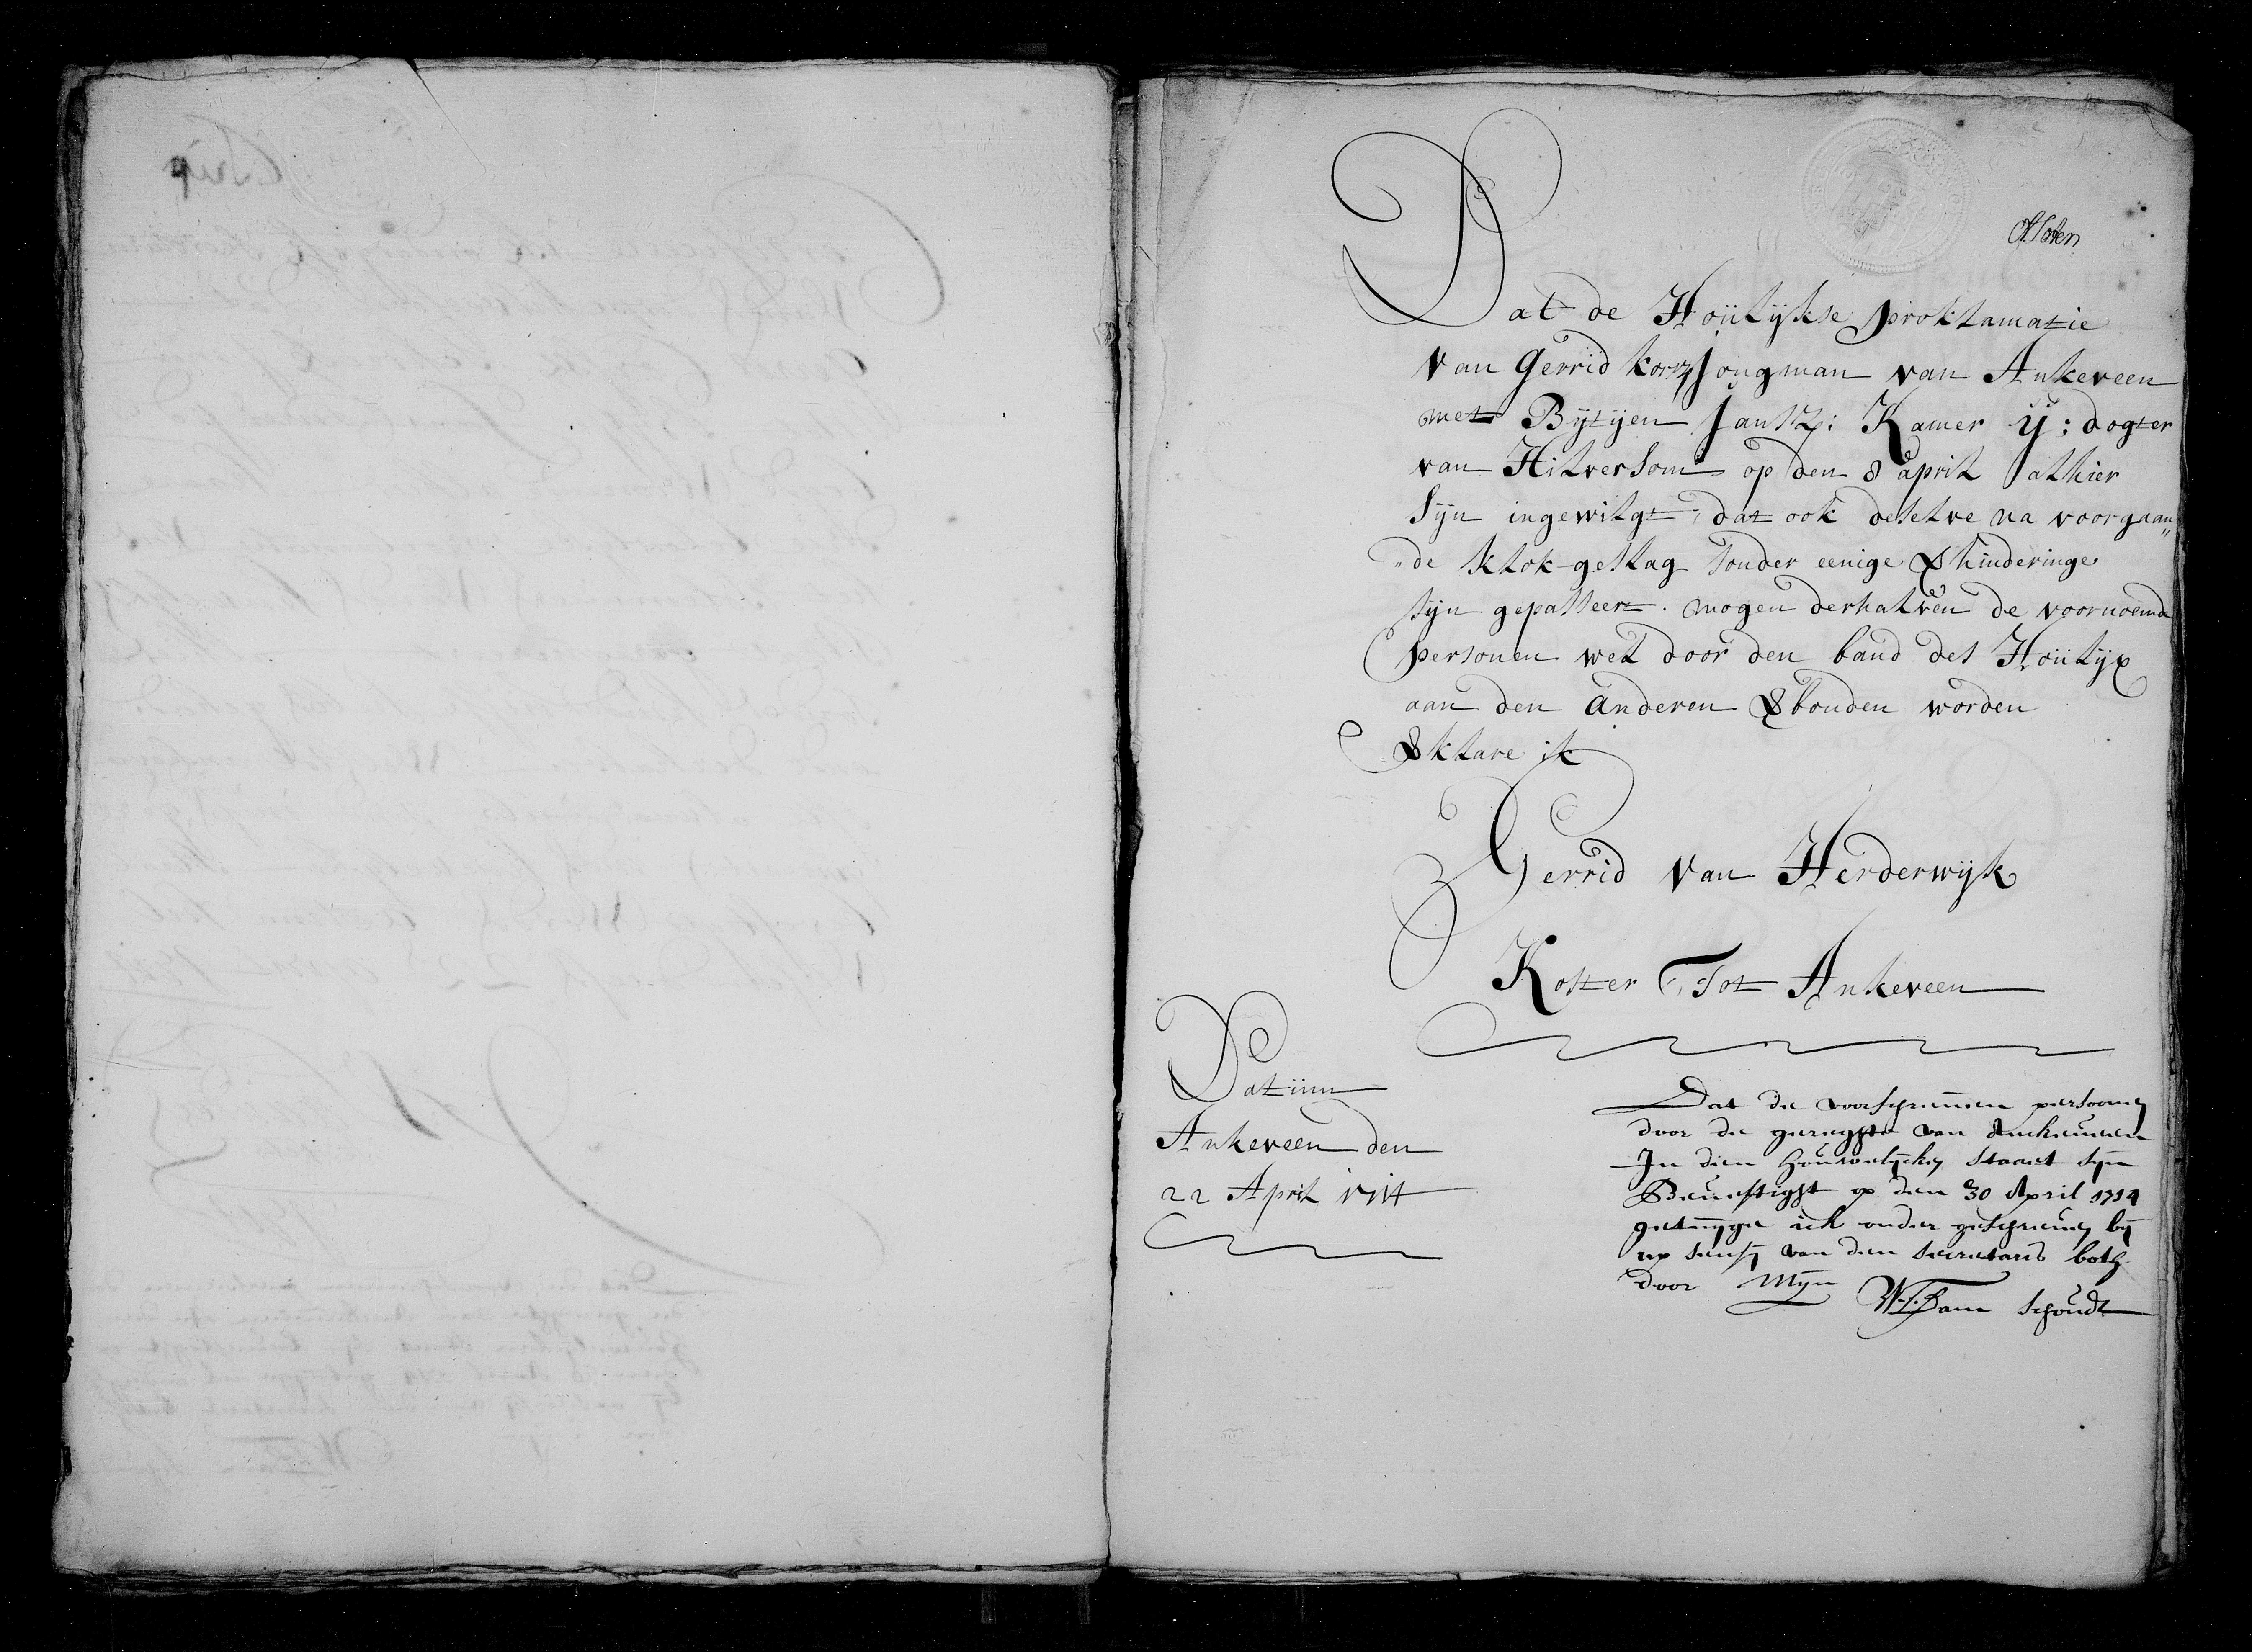 Dat de Hoülÿkse proklamatie
van Gerrid Korsz Jongman van Ankeveen
met Bÿtÿen Jansz: Kamer ÿ: dogter
van Hilversom op den 8 april alhier
Sÿn ingewilgt, dat ook deselve na voorgaan„
„de klok-geslag sonder eenige vhinderinge
sÿn gepasseert. mogen derhalven de voornoemde
personen wel door den band des Hoülÿx
aan den anderen vbonden worden
vklare ik
Gerrid van Herderwÿk
Koster Tot Ankeveen
Datüm
Ankeveen den
22 April 1714
Dat de voorschreuen persoonen
door de geregte van Anckeueen
In dien houwelÿcken staaet sÿn
Beuestight op den 30 April 1714
getuÿge ick onder geschreuen bÿ
den secretaris both
door Mÿn
Dam schoudt